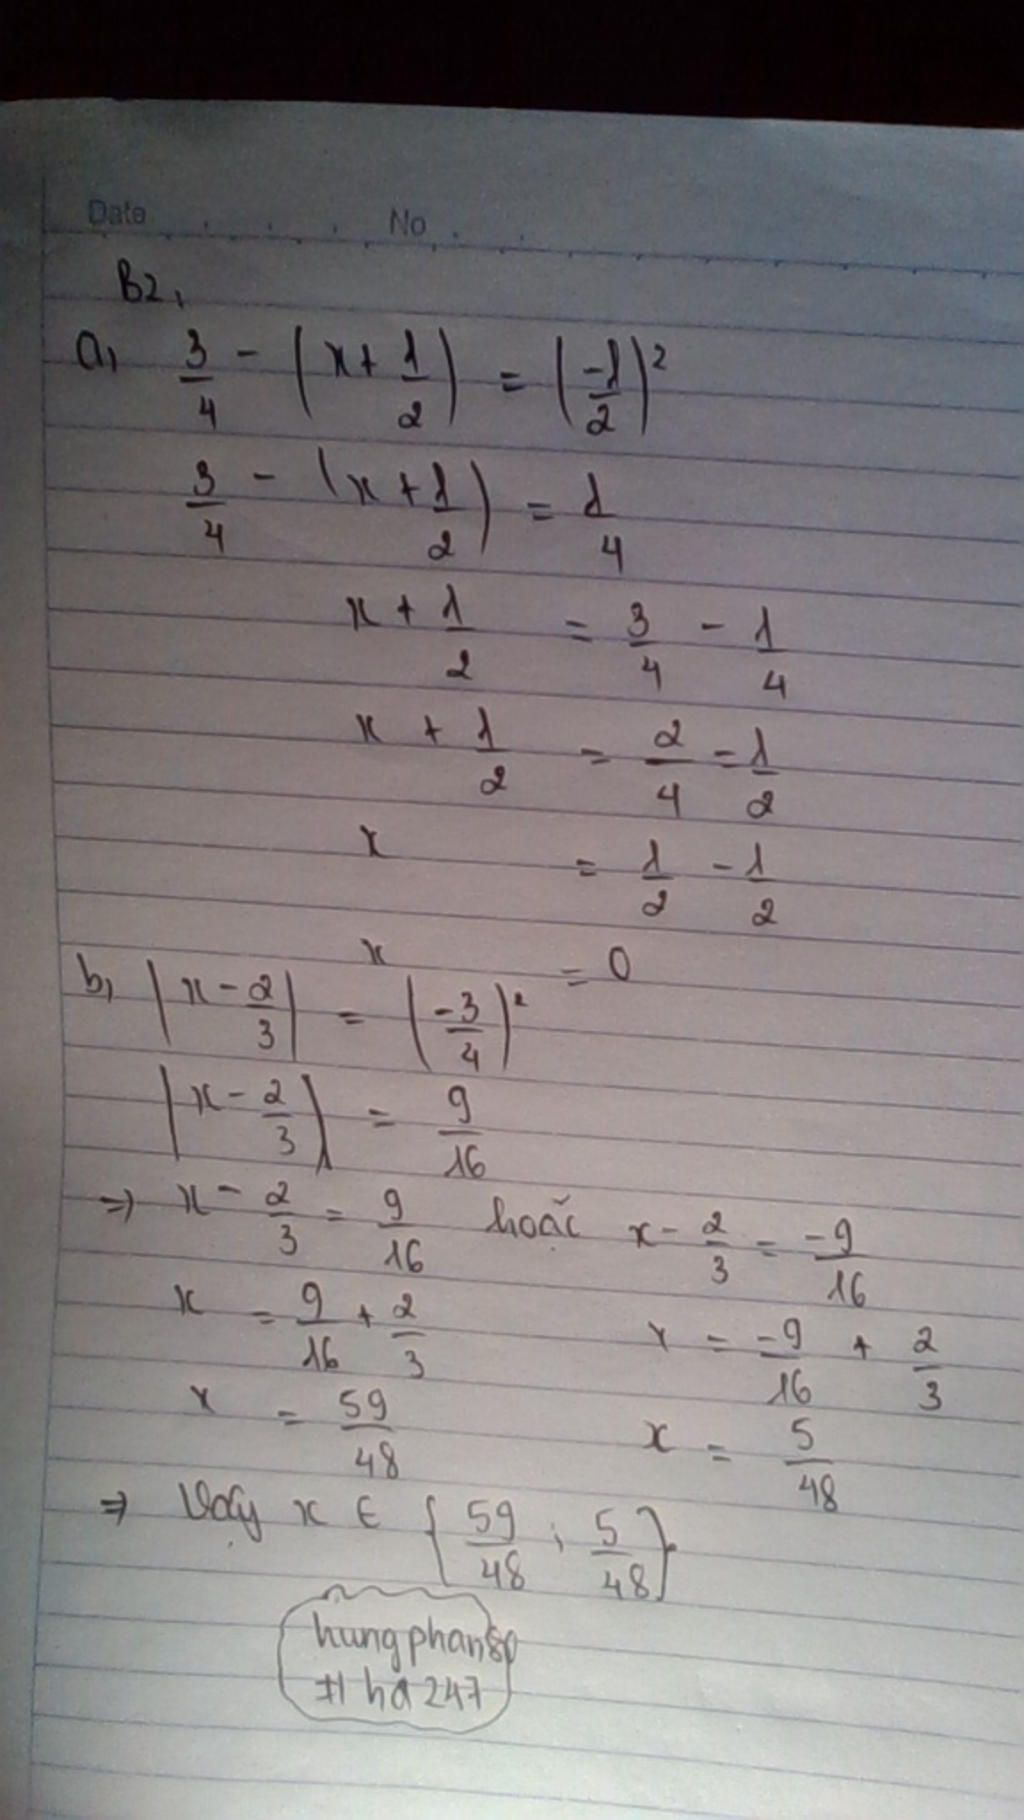 Date No
B2,
a, 3/4 - (x + 1/2) = (-1/2)²
3/4 - (x + 1/2) = 1/4
x + 1/2 = 3/4 - 1/4
x + 1/2 = 2/4 = 1/2
x = 1/2 - 1/2
x = 0
b, |x - 2/3| = (-3/4)²
|x - 2/3| = 9/16
=> x - 2/3 = 9/16 hoặc x - 2/3 = -9/16
x = 9/16 + 2/3 x = -9/16 + 2/3
x = 59/48 x = 5/48
=> Vậy x ∈ {59/48 ; 5/48}